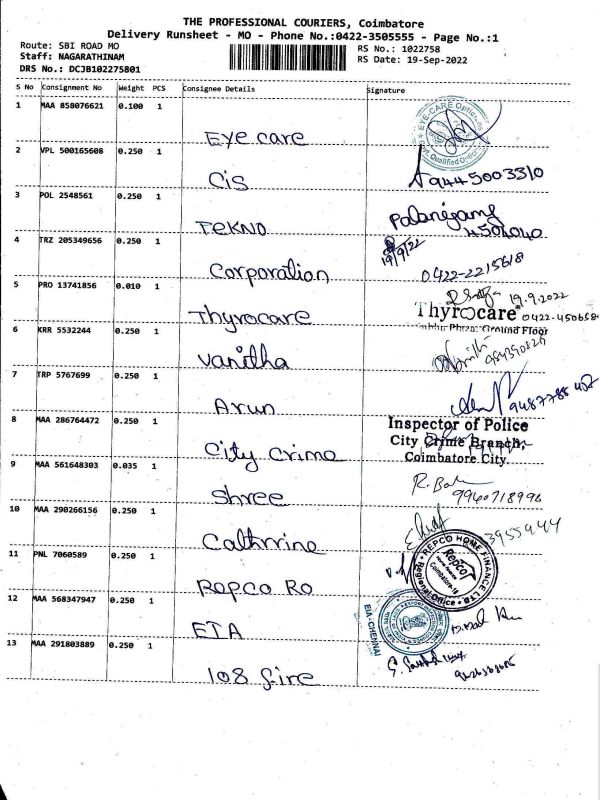 THE PROFESSIONAL COURIERS, Coimbatore
Delivery Runsheet - MO - Phone No.:0422-3505555 - Page No.:1
Route: SBI ROAD MO
RS No.: 1022758
Staff: NAGARATHINAM
RS Date: 19-Sep-2022
DRS No.: DCJB102275801
S No Consignment No Weight PCS Consignee Details Signature
1 MAA 858076621 0.100 1
EYE CARE
Eye care
2 VPL 500165608 0.250 1
Cis
9445003310
3 POL 2548561 0.250 1
TEKNO
4504040
4 TRZ 205349656 0.250 1
19/9/22
Corporation
0422-2215618
5 PRO 13741856 0.010 1
19.9.2022
Thyrocare
Thyrocare 0422-450658
6 KRR 5532244 0.250 1
Ground Floor
Vanitha
7 TRP 5767699 0.250 1
Arun
8 MAA 286764472 0.250 1
Inspector of Police
City Crime Branch,
City Crime
Coimbatore City.
9 MAA 561648303 0.035 1
Shree
9940718996
10 MAA 290266156 0.250 1
Cathrrine
3955944
11 PNL 7060589 0.250 1
REPCO HOME FINANCE LTD
Regional Office
Repco
Repco Ro
12 MAA 568347947 0.250 1
EIA-CHENNAI
EIA
13 MAA 291803889 0.250 1
108 fire